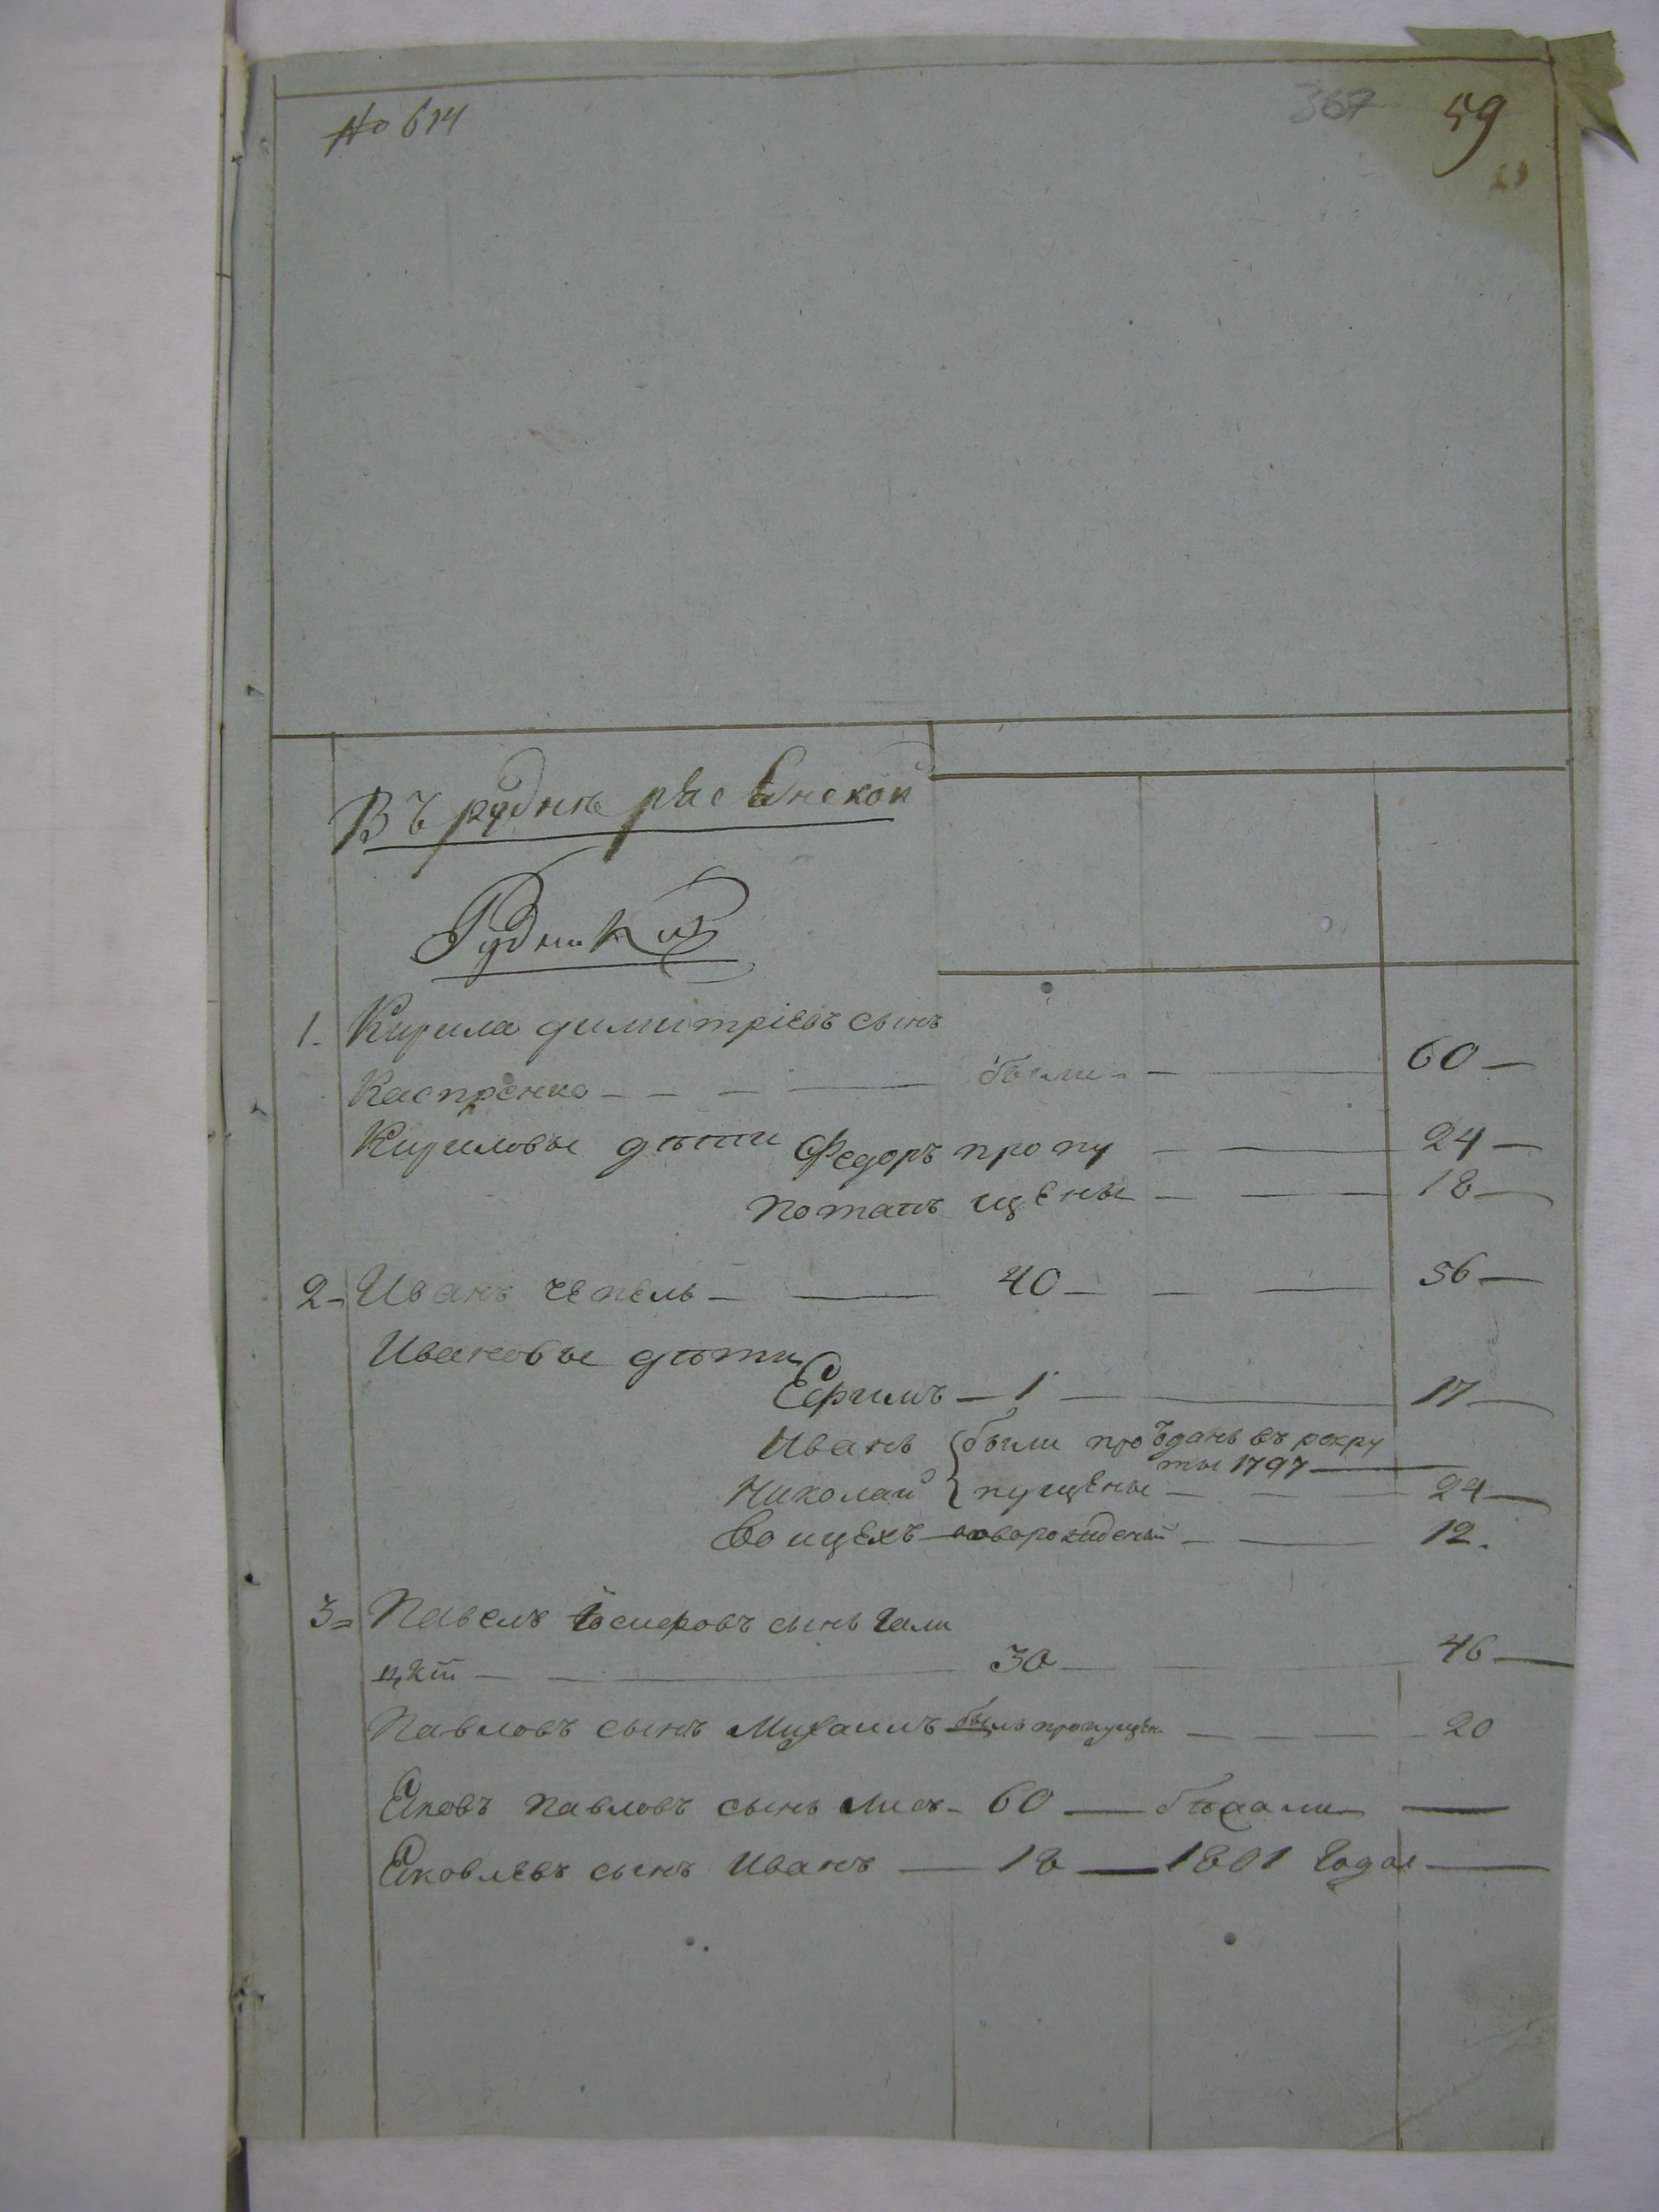 № 614
367 59
Въ рудне
Рудники
1. Кирила димитріевъ сынъ
Каспренко были 60
Кириловы дѣти Федоръ пропу 24
потапъ щены 18
2 Иванъ чепель 40 56
Ивановы дѣти
Ефимъ 1 17
Иванъ были про ѿданъ въ рекру
ты 1797
Николай пущены 24
Войцехъ новорожденый 12.
3 Павелъ Іосифовъ сынъ Гали
цкій 30 46
Павловъ сынъ Михаилъ былъ пропущен 20
Яковъ павловъ сынъ лисъ 60 бѣжали
Яковлевъ сынъ Иванъ 18 1801 Года